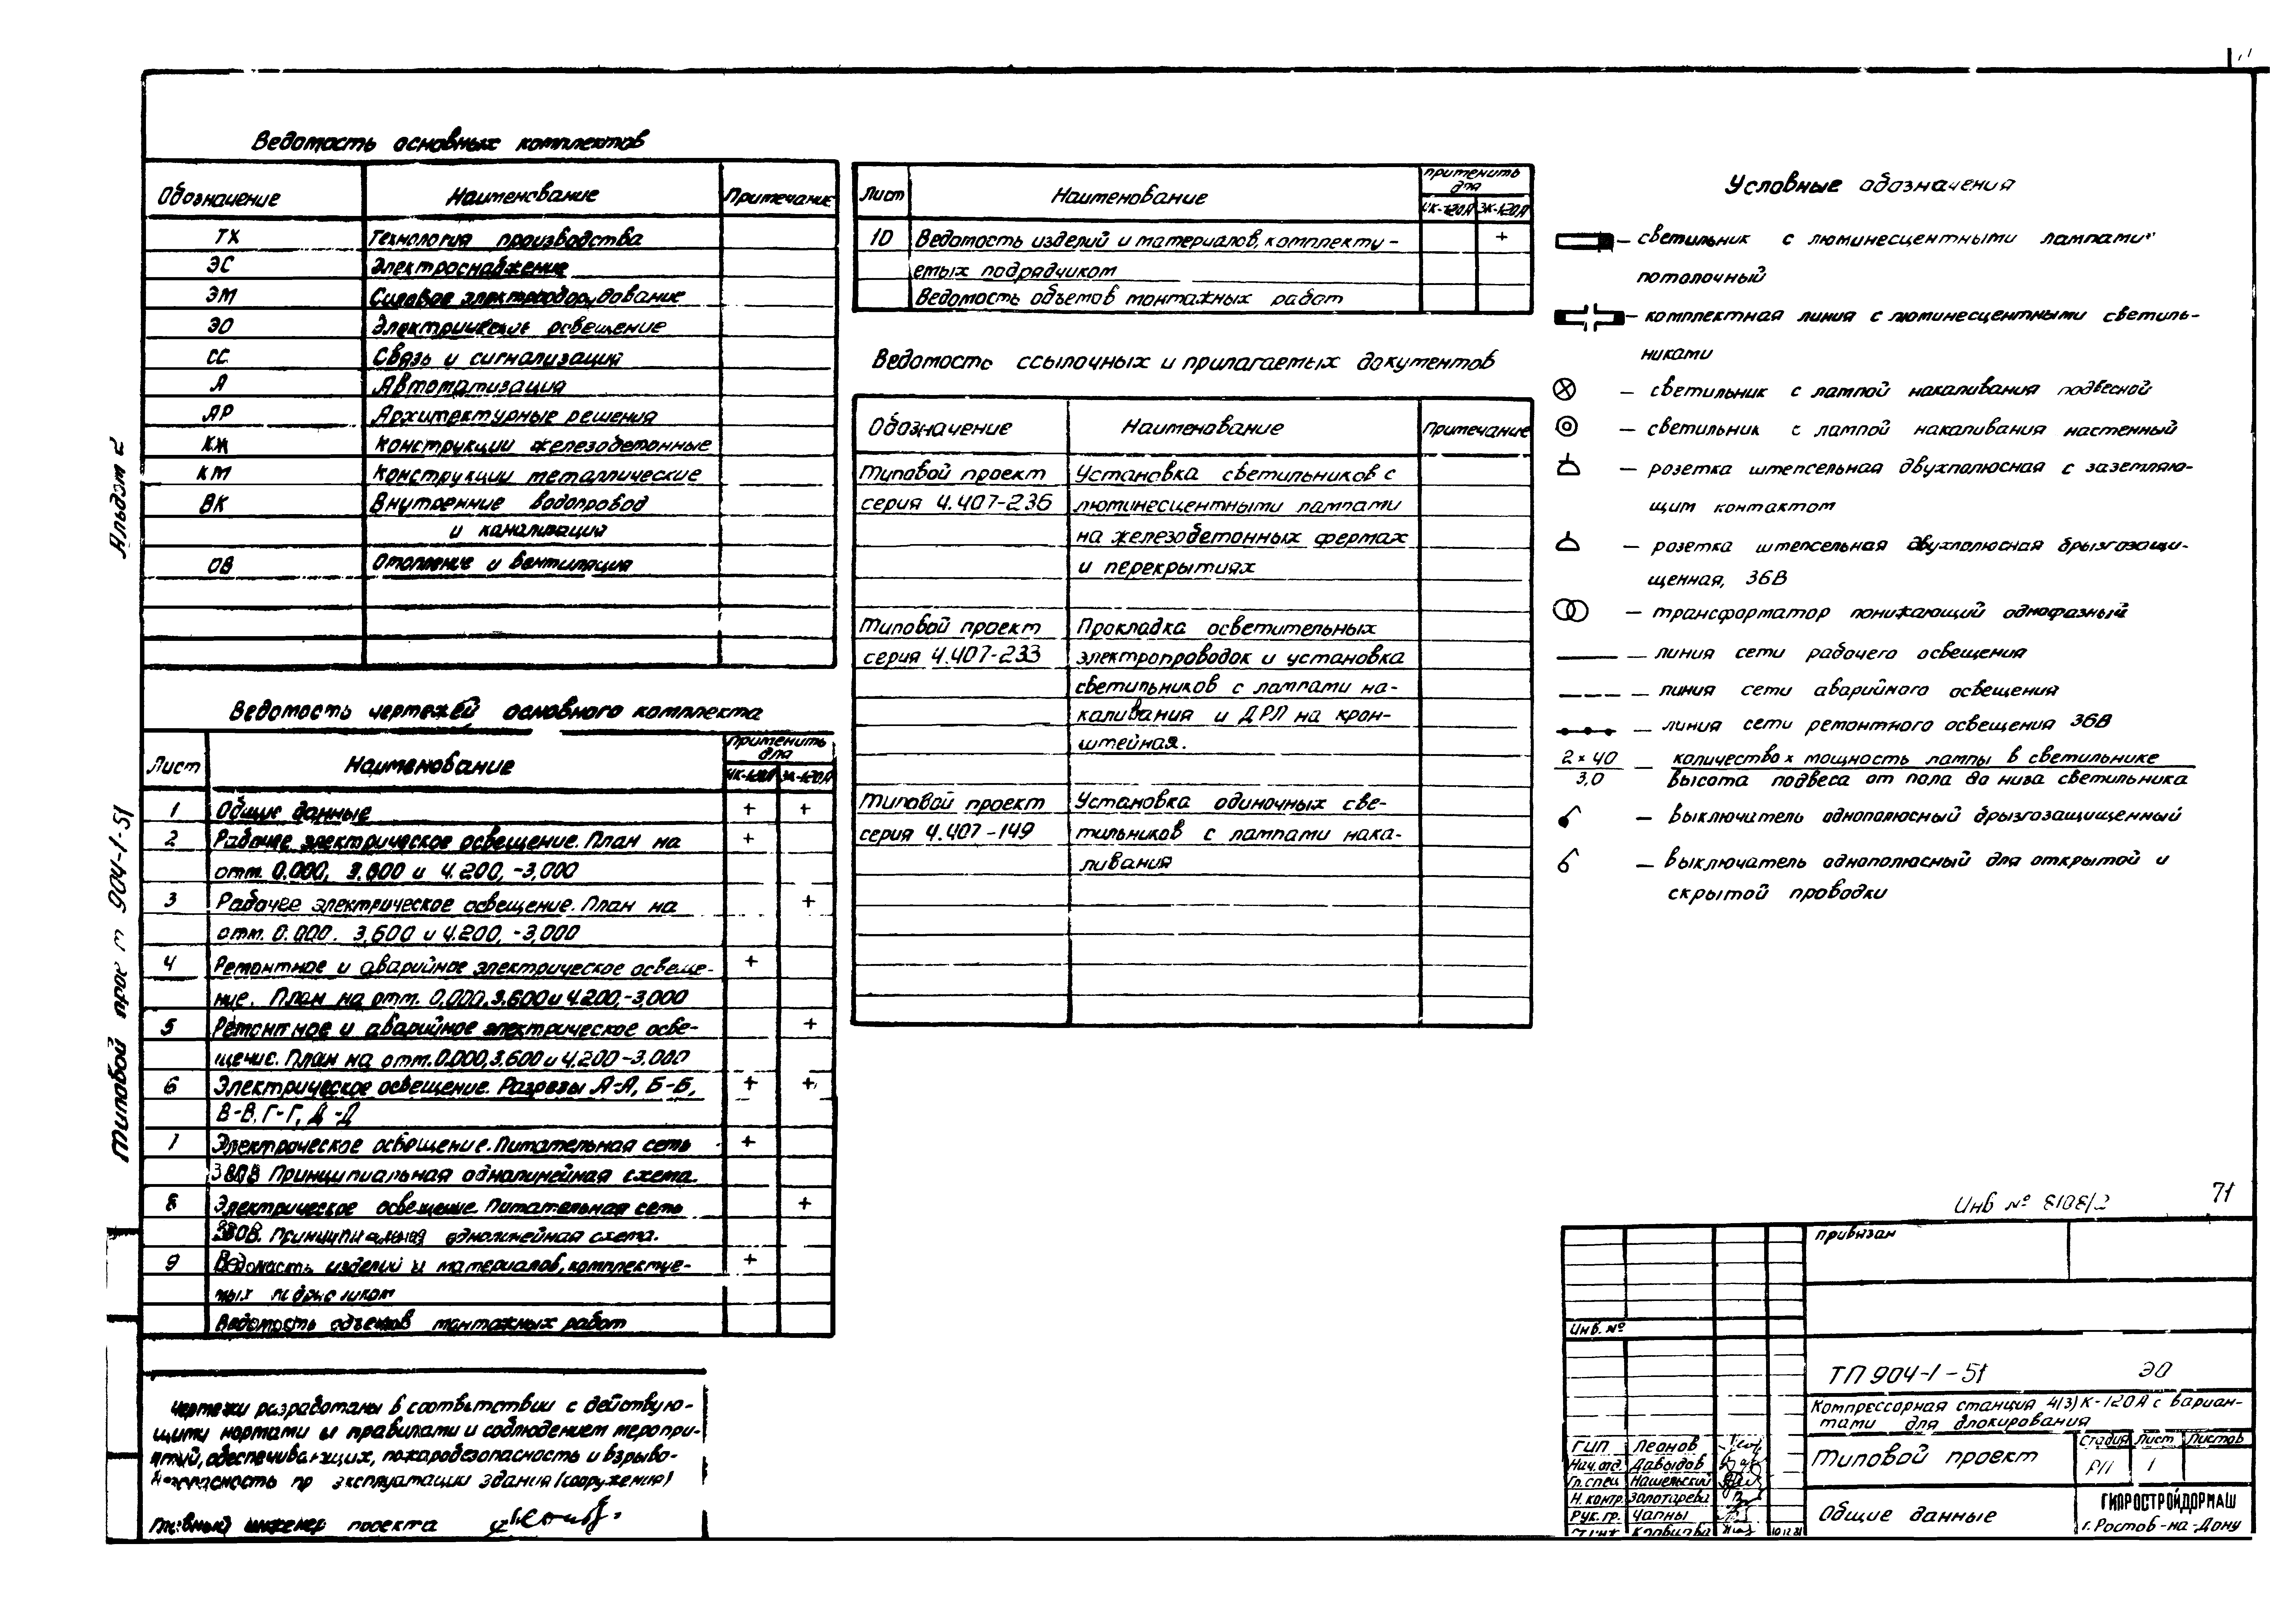 Ведомость основных комплектов
Обозначение Наименование Примечание
ТХ Технология производства
ЭС Электроснабжение
ЭМ Силовое электрооборудование
ЭО Электрическое освещение
СС Связь и сигнализация
А Автоматизация
АР Архитектурные решения
КЖ Конструкции железобетонные
КМ Конструкции металлические
ВК Внутренние водопровод
и канализация
ОВ Отопление и вентиляция
Ведомость чертежей основного комплекта
Лист Наименование Применить
для
4К-120А 3К-120А
1 Общие данные + +
2 Рабочее электрическое освещение. План на +
отм. 0.000, 3.600 и 4.200, -3,000
3 Рабочее электрическое освещение. План на +
отм. 0.000. 3,600 и 4.200, -3,000
4 Ремонтное и аварийное электрическое освеще- +
ние. План на отм. 0.000, 3.600 и 4.200, -3,000
5 Ремонтное и аварийное электрическое осве- +
щение. План на отм. 0.000, 3.600 и 4.200 -3.000
6 Электрическое освещение. Разрезы А-А, Б-Б, + +
В-В, Г-Г, Д-Д
7 Электрическое освещение. Питательная сеть +
380В Принципиальная однолинейная схема.
8 Электрическое освещение. Питательная сеть +
380В. Принципиальная однолинейная схема.
9 Ведомость изделий и материалов, комплектуе- +
мых подрядчиком
Ведомость объемов монтажных работ
Чертежи разработаны в соответствии с действую-
щими нормами и правилами и соблюдением меропри-
ятий, обеспечивающих, пожаробезопасность и взрыво-
безопасность при эксплуатации здания (сооружения)
Главный инженер проекта
Лист Наименование Применить
для
4К-120А 3К-120А
10 Ведомость изделий и материалов, комплекту- +
емых подрядчиком
Ведомость объемов монтажных работ
Ведомость ссылочных и прилагаемых документов
Обозначение Наименование Примечание
Типовой проект Установка светильников с
серия 4.407-236 люминесцентными лампами
на железобетонных фермах
и перекрытиях
Типовой проект Прокладка осветительных
серия 4.407-233 электропроводок и установка
светильников с лампами на-
каливания и ДРЛ на крон-
штейная.
Типовой проект Установка одиночных све-
серия 4.407-149 тильников с лампами нака-
ливания
Условные обозначения
– светильник с люминесцентными лампами
потолочный
– комплектная линия с люминесцентными светиль-
никами
– светильник с лампой накаливания подвесной
– светильник с лампой накаливания настенный
– розетка штепсельная двухполюсная с заземляю-
щим контактом
– розетка штепсельная двухполюсная брызгозащи-
щенная, 36В
– трансформатор понижающий однофазный
– линия сети рабочего освещения
– линия сети аварийного освещения
– линия сети ремонтного освещения 36В
2×40 – количество х мощность лампы в светильнике
3,0 высота подвеса от пола до низа светильника
– выключатель однополюсный брызгозащищенный
– выключатель однополюсный для открытой и
скрытой проводки
Инв № 8108/2 71
Привязан
Инв. №
ТП 904-1-51 ЭО
Компрессорная станция 4(3)К-120А с вариан-
тами для блокирования
Типовой проект Стадия Лист Листов
РП 1
Общие данные ГИПРОСТРОЙДОРМАШ
г. Ростов-на-Дону
ГИП Леонов
Нач. отд. Давыдов
Гл. спец. Нашемский
Н. контр. Золотарева
Рук. гр. Чапны
Альбом 2
Типовой проект 904-1-51